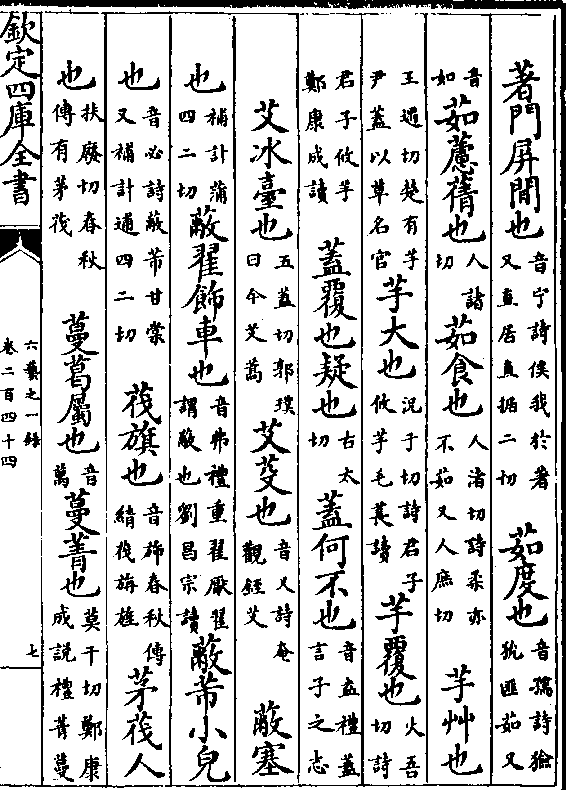 著門屏閒也音宁詩俟我於著又直居直據二切茹度也音孺詩玁狁匪茹又
音如茹藘蒨也人諸切茹食也人渚切詩柔亦不茹又人庶切芋艸也
王遇切楚有芋尹蓋以草名官芋大也況于切詩君子攸芋毛萇讀芋覆也火吾切詩
君子攸芋鄭康成讀蓋覆也疑也古太切蓋何不也音盍禮蓋言子之志
艾冰臺也五蓋切郭璞曰今艾蒿艾芟也音乂詩奄觀銍艾蔽塞
也補計蒲四二切蔽翟飾車也音弗禮重翟厭翟謂蔽也劉昌宗讀蔽芾小皃
也音必詩蔽芾甘棠又補計逋四二切茷旗也音旆春秋傳綪茷旃旌茅茷人
也扶廢切春秋傳有茅茷蔓葛屬也音萬蔓菁也莫干切鄭康成說禮菁蔓
欽定四庫全書
六藝之一録
卷二百四十四
七